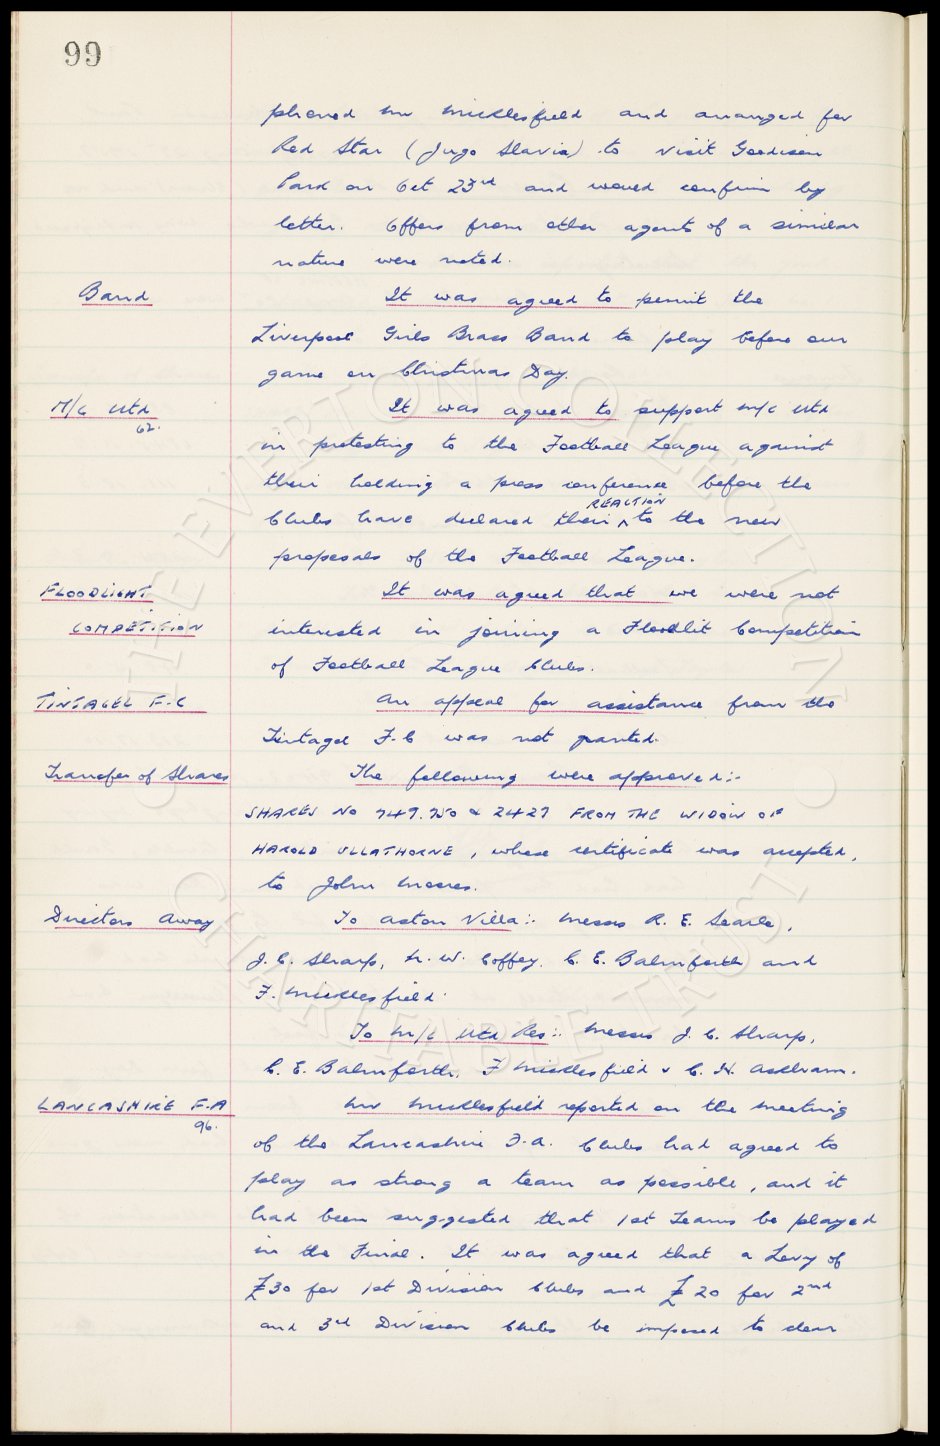 99
phoned Mr Micklesfield and arranged for
Red Star (Jugo Slavia) to visit Goodison
Park on Oct 23rd and would confirm by
letter. Offers from other agents of a similar
nature were noted.
Band It was agreed to permit the
Liverpool Girls Brass Band to play before our
game on Christmas Day.
M/C Utd It was agreed to support M/C Utd
62. in protesting to the Football League against
their holding a press conference before the
REACTION
Clubs have declared their ^ to the new
proposals of the Football League.
FLOODLIGHT It was agreed that we were not
COMPETITION interested in joining a Floodlit Competition
of Football League Clubs.
TINTAGEL F.C An appeal for assistance from the
Tintagel F.C was not granted.
Transfer of Shares The following were approved:-
SHARES NO 749.750 & 2427 FROM THE WIDOW OF
HAROLD ULLATHORNE, whose certificate was accepted,
to John Moores.
Directors Away To Aston Villa:- Messrs R. E. Searle,
J. C. Sharp, N. W. Coffey, C. E. Balmforth and
F. Micklesfield.
To M/C Utd Res:- Messrs J. C. Sharp,
C. E. Balmforth, F Micklesfield & C. H. Askham.
LANCASHIRE F.A Mr Micklesfield reported on the meeting
96. of the Lancashire F.A. Clubs had agreed to
play as strong a team as possible, and it
had been suggested that 1st Teams be played
in the Final. It was agreed that a Levy of
£30 for 1st Division Clubs and £20 for 2nd
and 3rd Division Clubs be imposed to clear
THE EVERTON COLLECTION
CHARITABLE TRUST